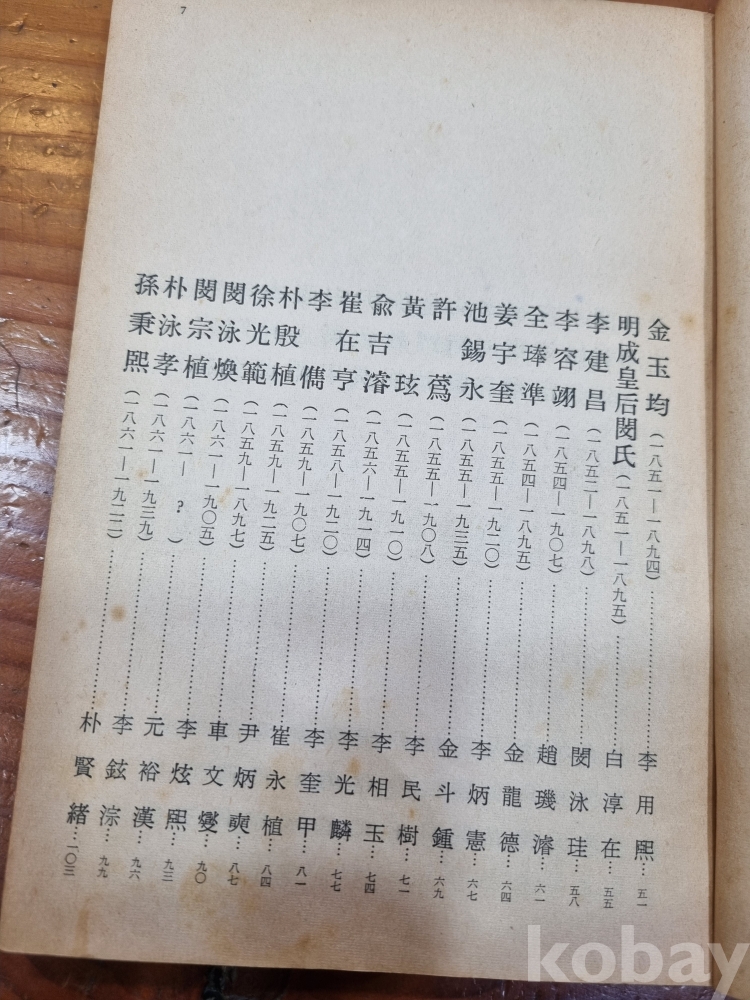 7
金玉均(一八五一—一八九四)……李用熙…五一
明成皇后閔氏(一八五一—一八九五)……白淳在…五五
李建昌(一八五二—一八九八)……閔泳珪…五八
李容翊(一八五四—一九〇七)……趙璣濬…六一
全琫準(一八五四—一八九五)……金龍德…六四
姜宇奎(一八五五—一九二〇)……李炳憲…六七
池錫永(一八五五—一九三五)……金斗鍾…六九
許蔿(一八五五—一九〇八)……李民樹…七一
黃玹(一八五五—一九一〇)……李相玉…七四
兪吉濬(一八五六—一九一四)……李光麟…七七
崔在亨(一八五八—一九二〇)……李奎甲…八一
李儁(一八五九—一九〇七)……崔永植…八四
朴殷植(一八五九—一九二五)……尹炳奭…八七
徐光範(一八五九—一八九七)……車文燮…九〇
閔泳煥(一八六一—一九〇五)……李炫熙…九三
閔宗植(一八六一—?)……元裕漢…九六
朴泳孝(一八六一—一九三九)……李鉉淙…九九
孫秉熙(一八六一—一九二二)……朴賢緖…一〇三
kobay